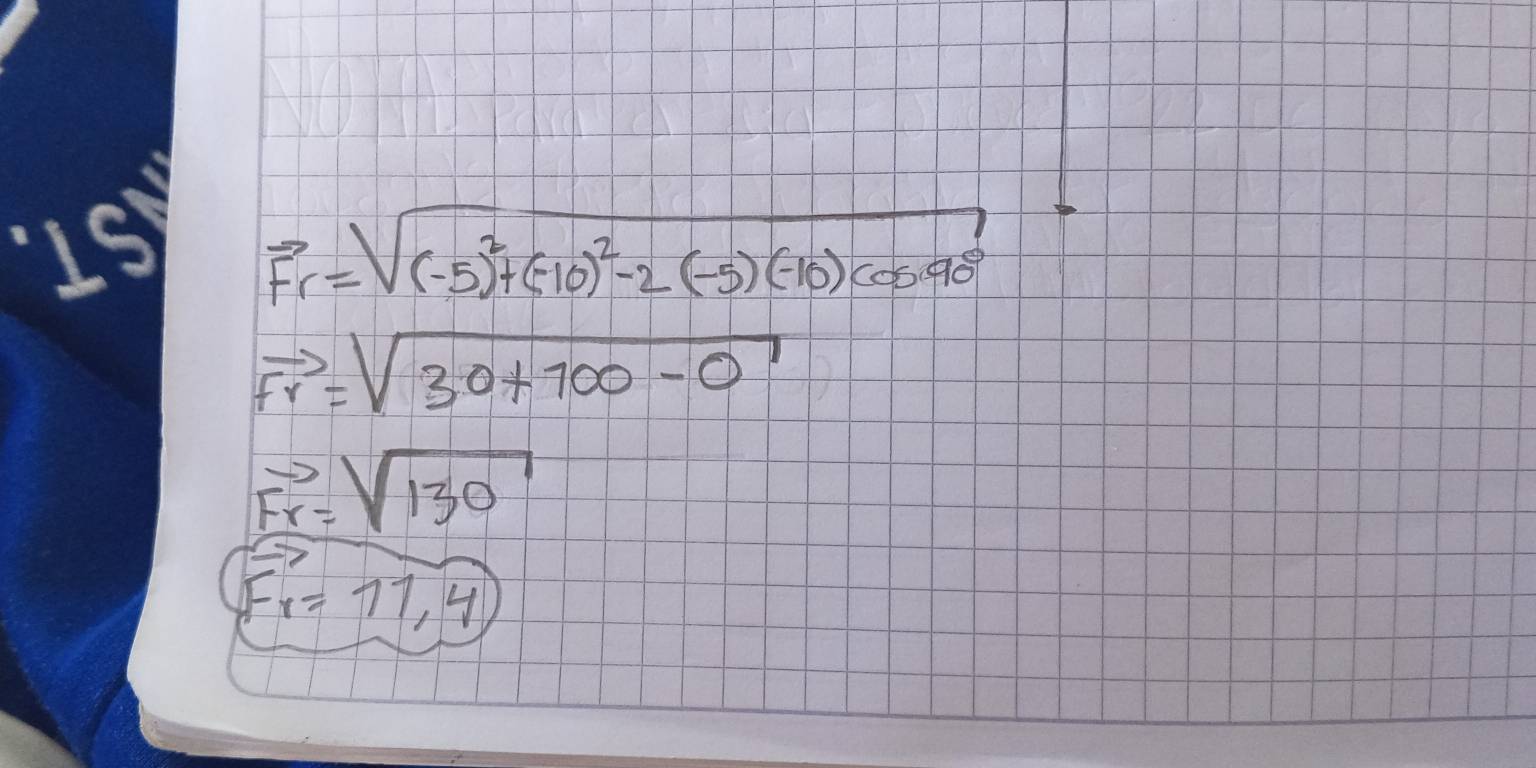 NST.
F⃗r = √(-5)²+(-10)²-2(-5)(-10)cos 90°
F⃗r = √30+100-0
F⃗r = √130
F⃗r = 11,4